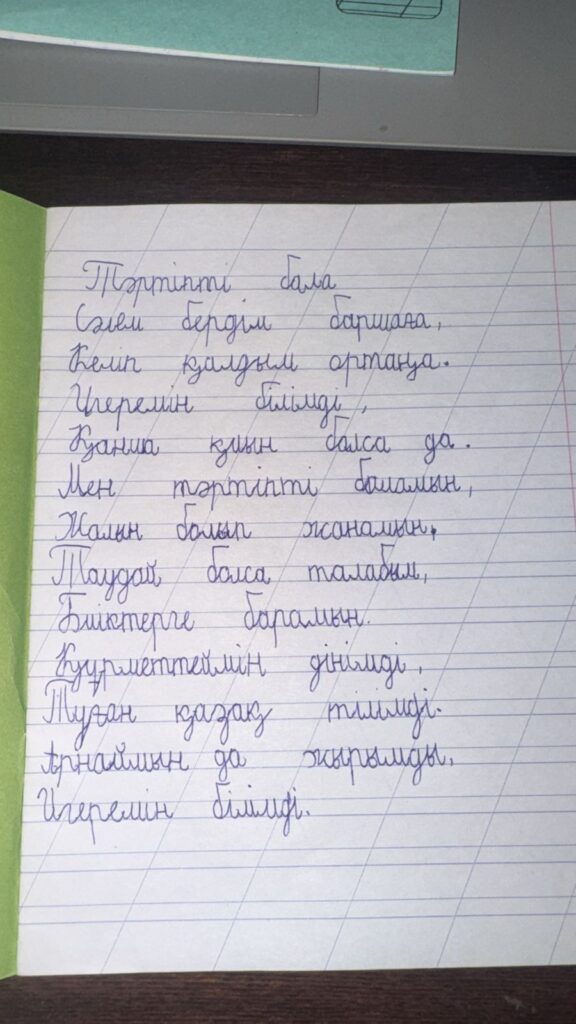 Тәртіпті бала
Сәлем бердім баршаға,
Келіп қалдым ортаңа.
Игеремін білімді,
Қанша қиын болса да.
Мен тәртіпті баламын,
Жалын болып жанамын,
Таудай болса талабым,
Биіктерге барамын.
Құрметтеймін дінімді,
Туған қазақ тілімді.
Арнаймын да жырымды,
Игеремін білімді.